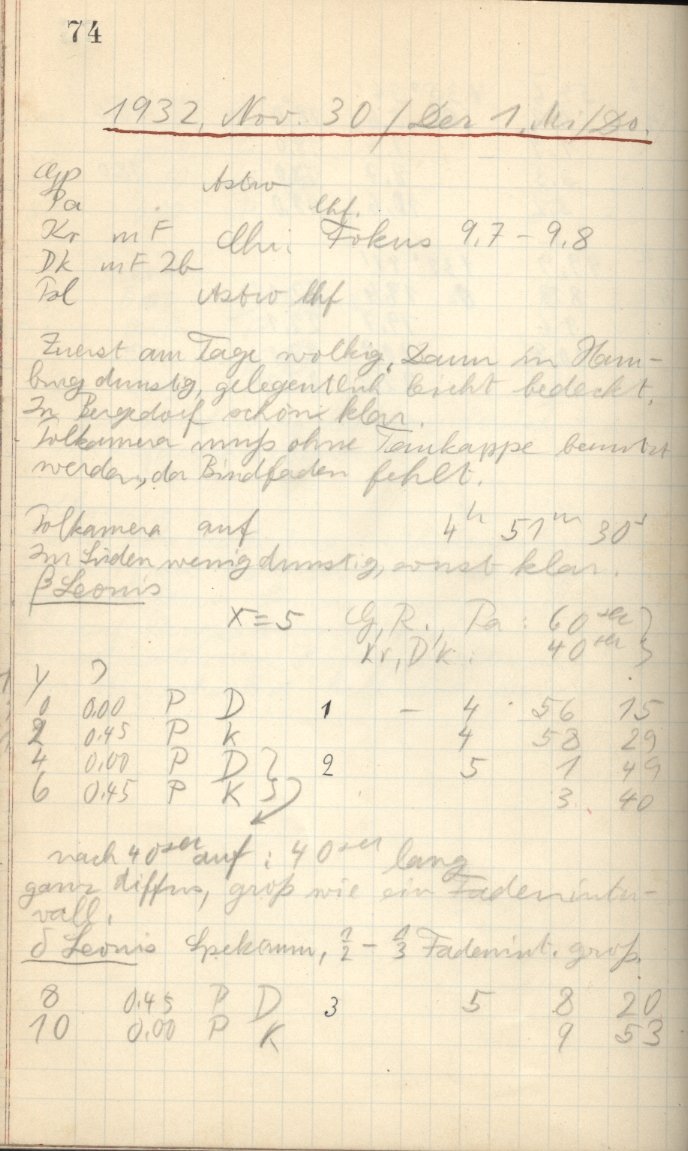 74
1932, Nov. 30 / Dez 1, Mi/Do.
Astro
Pa Uhf.
Kr mF Uhr: Fokus 9,7 – 9,8
DK mF 2b
Pol Astro Uhf
Zuerst am Tage wolkig, Dann in Ham-
burg dunstig, gelegentlich leicht bedeckt.
In Bergedorf schön klar.
Polkamera muß ohne Taukappe benutzt
werden, da Bindfaden fehlt.
Polkamera auf 4h 51m 30s
Im Süden wenig dunstig, sonst klar.
β Leonis
X=5 G, R., Pa: 60sec }
Kr, DK: 40sec }
y
0 0.00 P D 1 – 4 56 15
2 0.45 P K 4 58 29
4 0.00 P D } 2 5 1 49
6 0.45 P K } 3 40
nach 40sec auf: 40sec lang
ganz diffus, groß wie ein Fadeninter-
vall.
δ Leonis Spektrum, 1/2 – 1/3 Fadenint. groß.
8 0.45 P D 3 5 8 20
10 0.00 P K 9 53